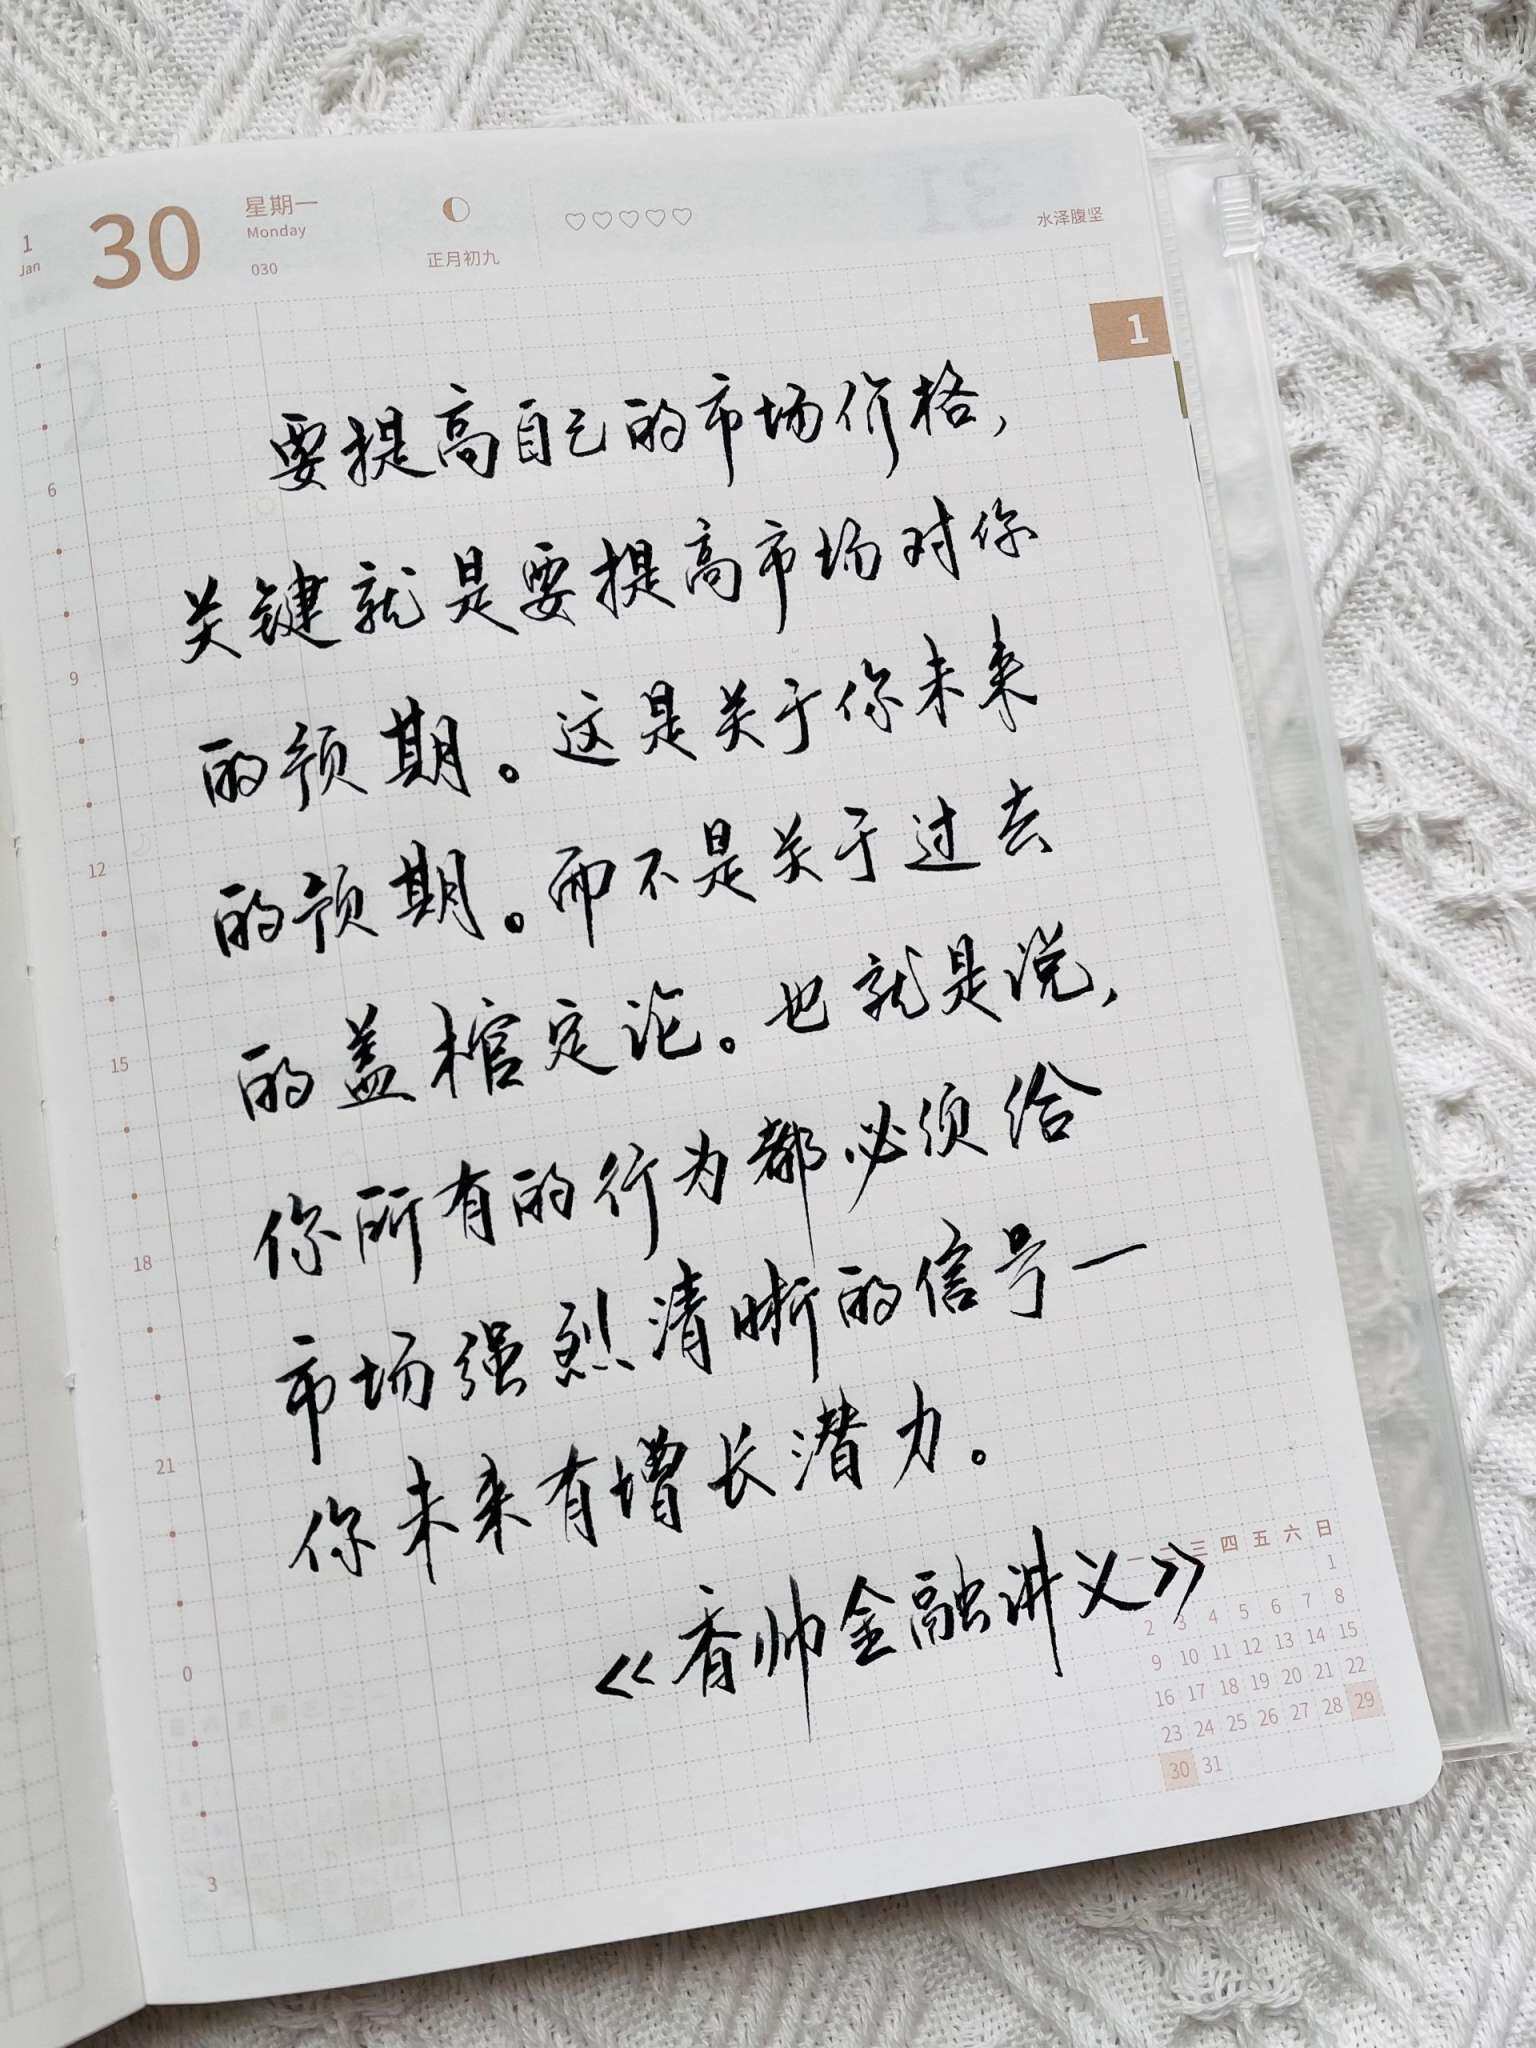 1
Jan
30
星期一
Monday
030
正月初九
水泽腹坚
1
要提高自己的市场价格，
关键就是要提高市场对你
的预期。这是关于你未来
的预期。而不是关于过去
的盖棺定论。也就是说，
你所有的行为都必须给
市场强烈清晰的信号一
你未来有增长潜力。
《香帅金融讲义》
6
9
12
15
18
21
0
3
一 二 三 四 五 六 日
1
2 3 4 5 6 7 8
9 10 11 12 13 14 15
16 17 18 19 20 21 22
23 24 25 26 27 28 29
30 31